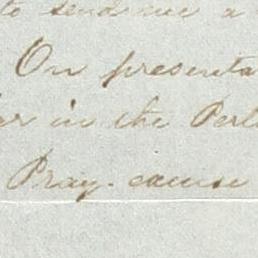 to send me a
On presenta
er in the Port
Pray. excuse